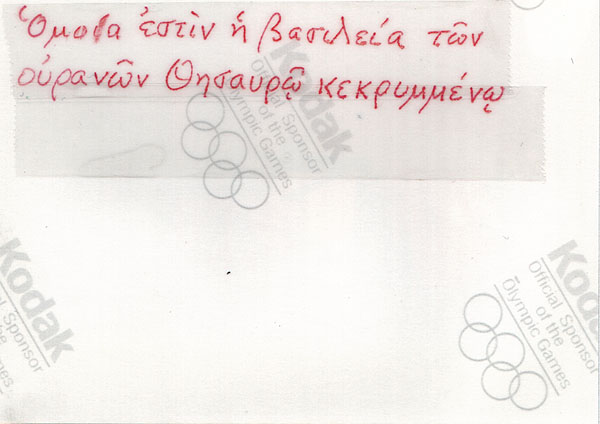 Ὁμοία ἐστὶν ἡ βασιλεία τῶν
οὐρανῶν θησαυρῷ κεκρυμμένῳ
Kodak
Official Sponsor
of the
Olympic Games
Kodak
Official Sponsor
Kodak
Official Sponsor
of the
Olympic Games